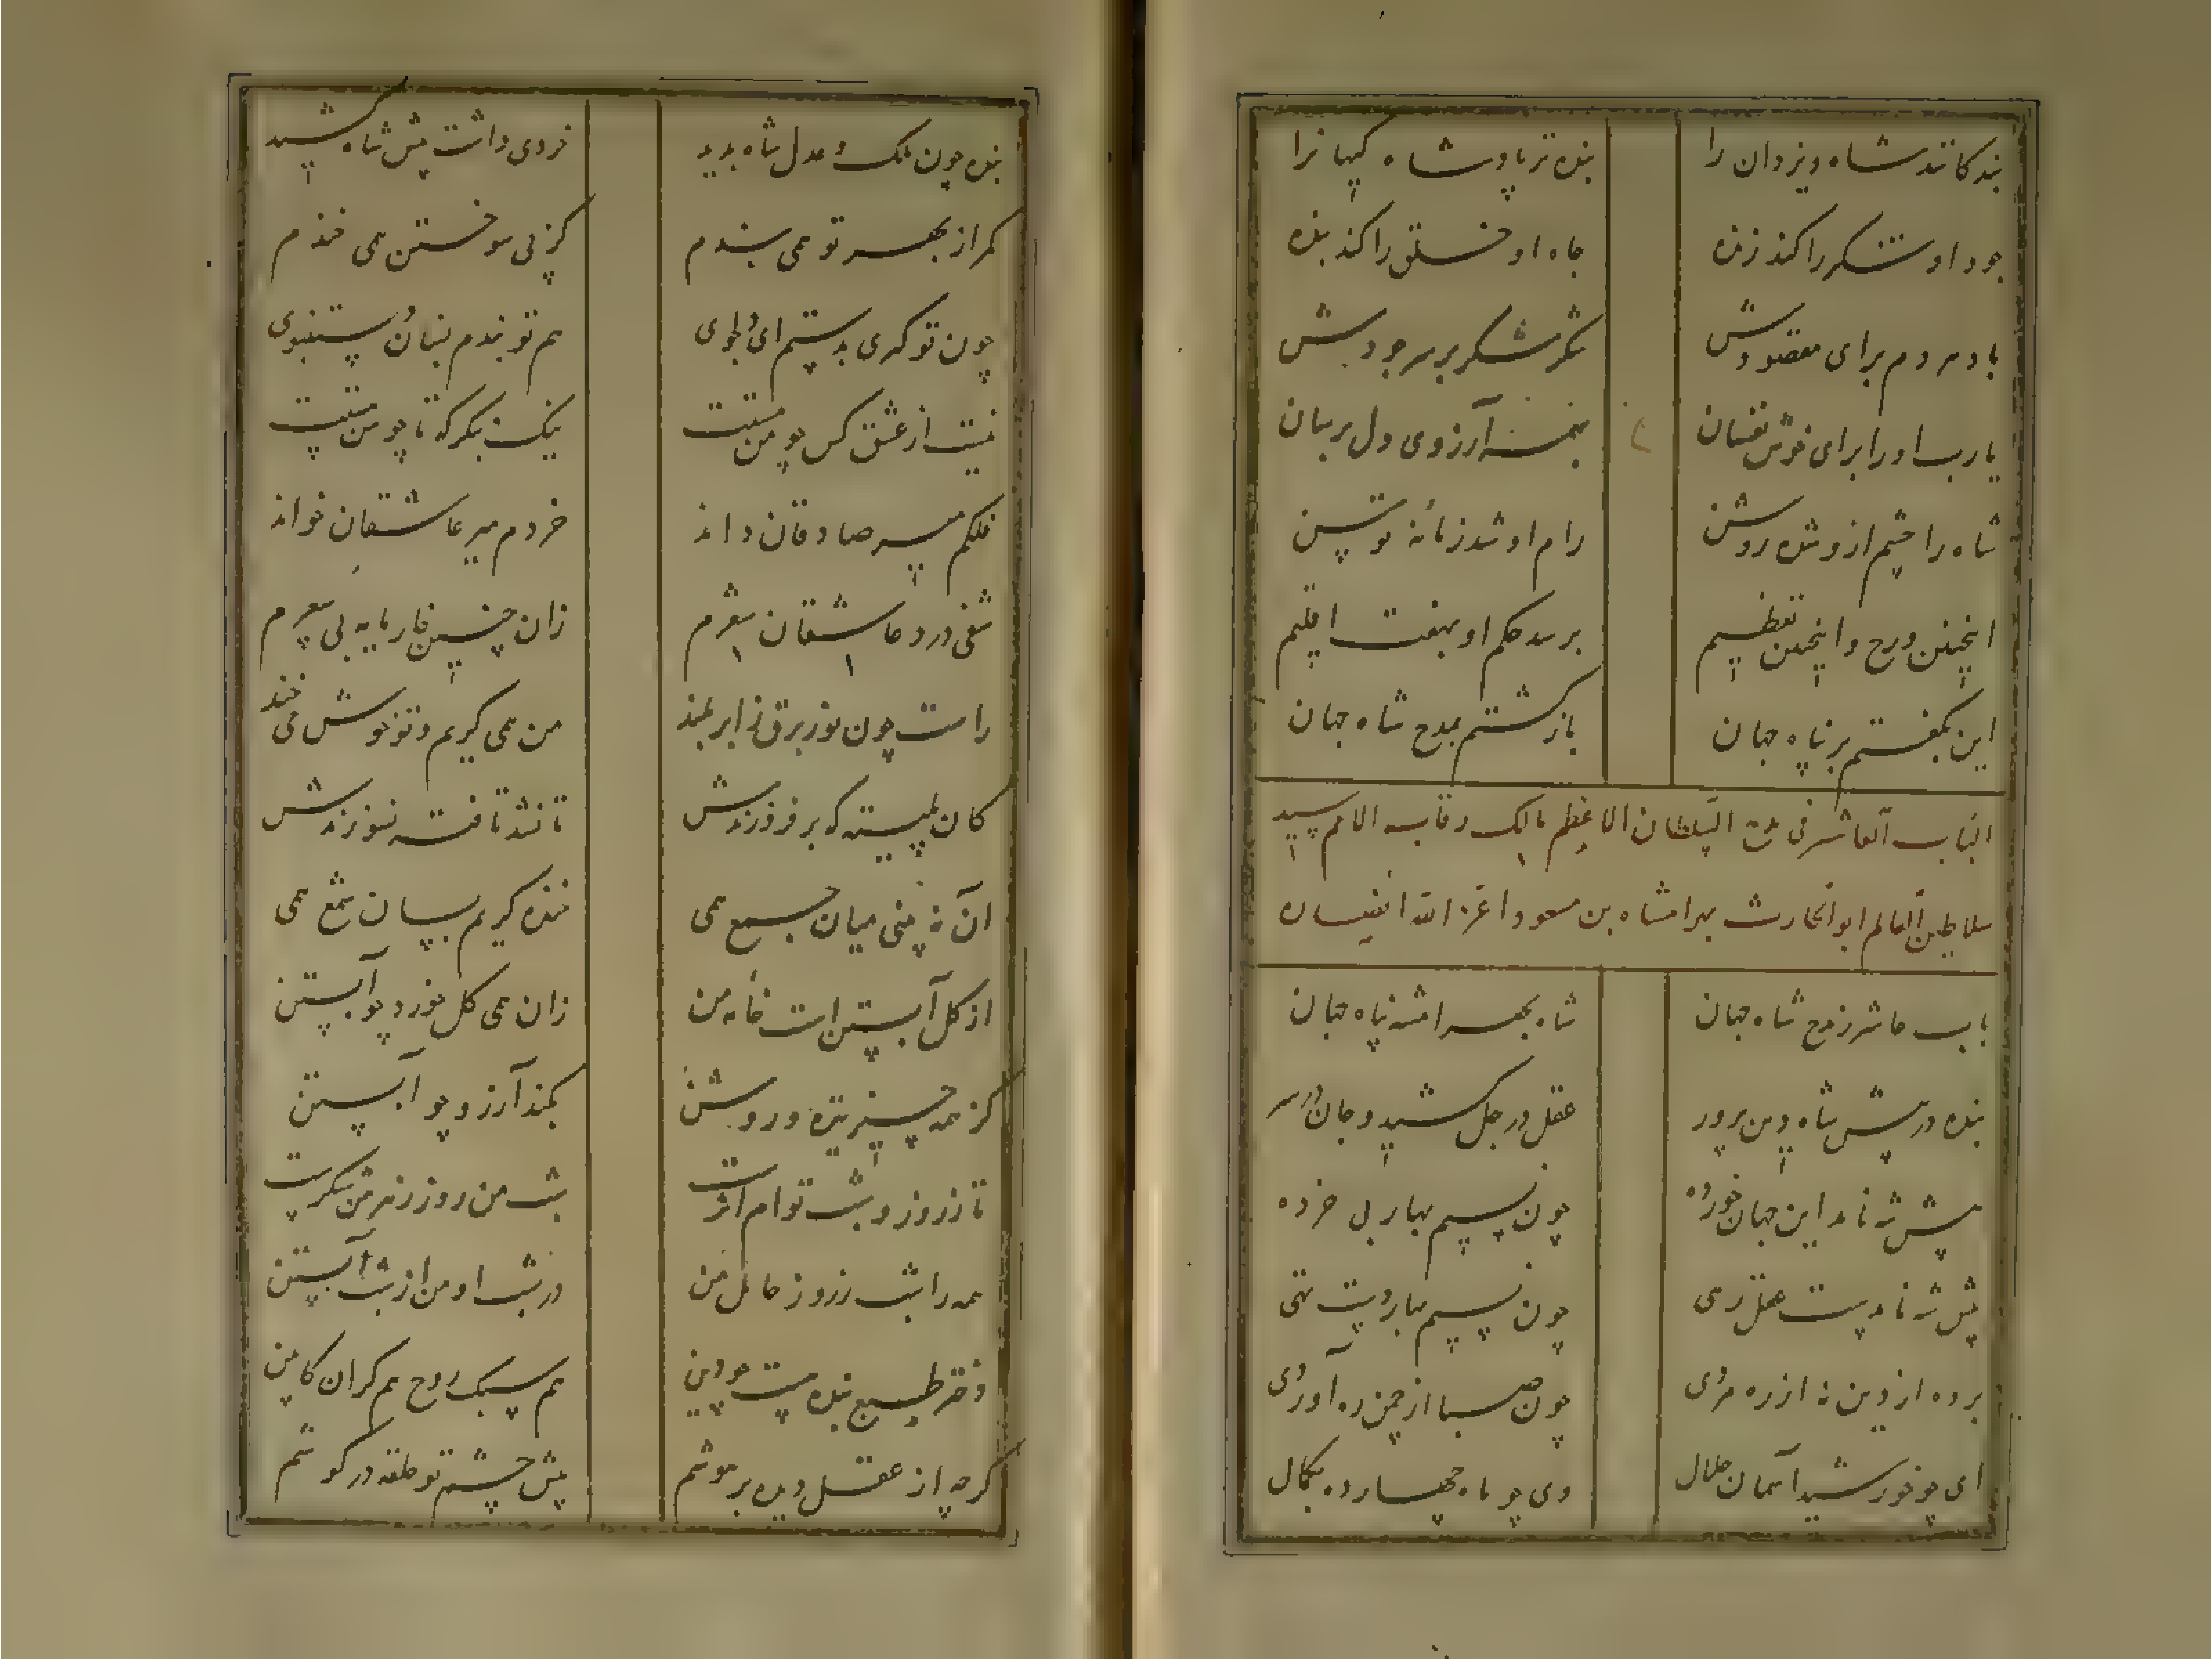 بندگانند شاه و یزدان را بنده تر پادشاه کیهان را
جود او شکر را کند زنده جاه او خلق را کند بنده
باد مردم برای مقصودش شکر شکر بر سر جودش
یارب او را برای خوش نفسان بهمه آرزوی دل برسان
شاه را چشم ازو شده روشن رام او شد زمانه توسن
اینچنین ورح و اینچنین تعظیم برسد حکم او بهفت اقلیم
این بگفتم بر پناه جهان بازگشتم بمدح شاه جهان
الباب العاشر فی مدح السلطان الاعظم مالک رقاب الامم سید
سلاطین العالم ابو الحارث بهرامشاه بن مسعود اعز الله انصاره
باب عاشر ز مدح شاه جهان شاه بهرامشه پناه جهان
بنده در پیش شاه دین پرور عقل در جل کشید و جان
پیش شه نامد این جهان خورده چون نسیم بهار بی خرده
پیش شه نامدست عقل رهی چون نسیم بهار دست تهی
برده از دین نه از ره مردی چون صبا از چمن ره آوردی
ای چو خورشید آسمان جلال وی چو ماه چهارده بکمال
بنده چون ملک و عدل شاه بدید خردی داشت پیش شاه کشید
کمر از بهر تو همی بندم کز پی سوختن همی خندم
چون تو کردی بدستم ای دلجوی هم تو بندم بسان دستنبوی
نیست از عشق کس چو من مست نیک بنگر که تا چو من هست
فلکم میر صادقان داند خردم میر عاشقان خواند
شفی درد عاشقان شعرم زان چنین خار مایه بی سعرم
راست چون نوز برق ز ابر بلند من همی گریم و تو خوش می خند
کان پلیته که بر فروزندش تا نشد تافته نسوزندش
آن نه بینی میان جمع همی خنده گریم بسان شمع همی
از گل آبستن است خانه من زان همی گل خورد چو آبستن
کز همه چیز تیره و روشن بکند آرزو چو آبستن
تا ز روز و شب توام اثرست شب من روز روز من سحرست
همه را شب ز روز حامل من در شب او من از شب آبستن
دختر طبع بنده هست چو دین هم سبک روح هم گران کابین
گرچه از عقل و دیده بر هوشم پیش چشم تو حلقه در گوشم